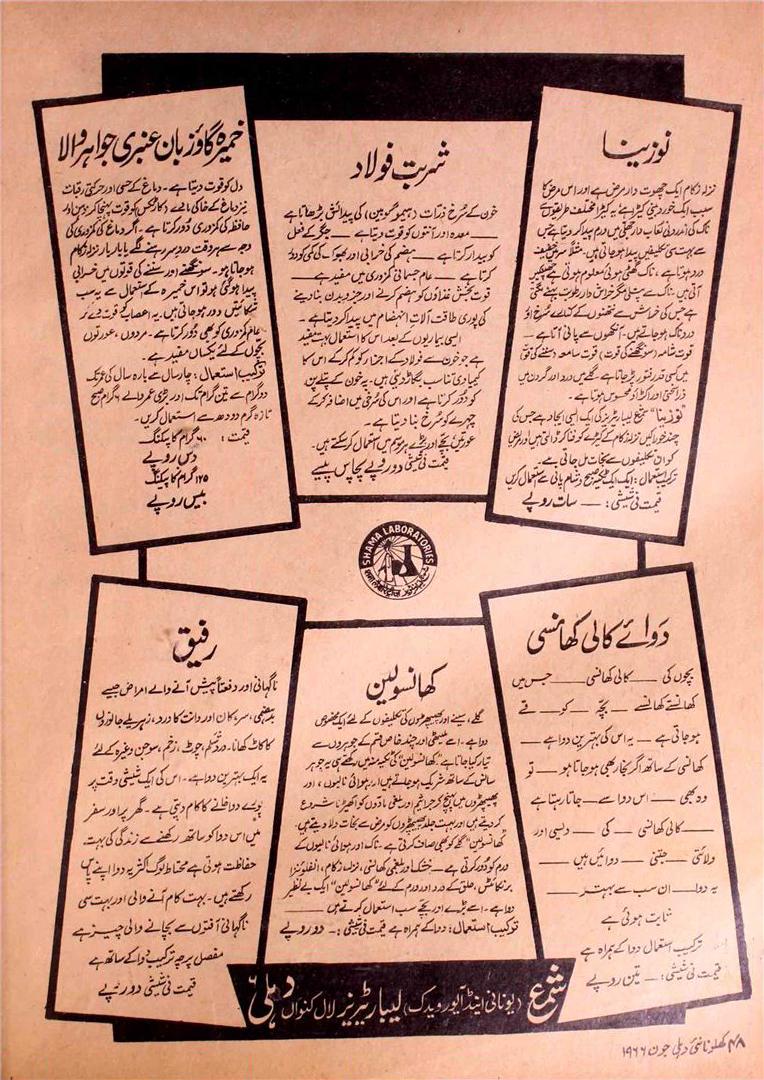 نوزینا
نزلہ زکام ایک چھوت دار مرض ہے اور اس مرض کا
سبب ایک خوردبینی کیڑا ہے یہ کیڑا مختلف طریقوں سے
ناک کی اندرونی لعاب دار جھلی میں ورم پیدا کر دیتا ہے جس
سے بہت سی تکلیفیں پیدا ہو جاتی ہیں۔ مثلاً سر میں خفیف
درد ہوتا ہے، ناک گھٹی ہوئی معلوم ہوتی ہے چھینکیں
آتی ہیں ناک سے پتلی مگر خراش دار رطوبت بہنے لگتی
ہے جس کی خراش سے نتھنوں کے کنارے سرخ اور
درد ناک ہو جاتے ہیں۔ آنکھوں سے پانی آتا ہے۔
قوت شامہ (سونگھنے کی قوت) قوت سامعہ (سننے کی قوت)
میں کسی قدر فتور پڑ جاتا ہے۔ گلے میں درد اور گردن میں
خراش اور اکڑاؤ محسوس ہوتا ہے۔
"نوزینا" شمع لیباریٹریز کی ایک ایسی ایجاد ہے جس کی
چند خوراکیں نزلہ زکام کے کیڑے کو فنا کر ڈالتی ہیں اور مریض
کو ان تکلیفوں سے نجات مل جاتی ہے۔
ترکیب استعمال: ایک ایک ٹکیہ صبح و شام پانی سے استعمال کریں
قیمت فی شیشی: ــــ سات روپے
شربت فولاد
خون کے سرخ ذرات (ہیموگلوبین) کی پیدائش بڑھاتا ہے
ــــ معدہ اور آنتوں کو قوت دیتا ہے ــــ جگر کے فعل
کو بیدار کرتا ہے ــــ ہضم کی خرابی اور بھوک کی کمی کو دور
کرتا ہے ــــ عام جسمانی کمزوری میں مفید ہے ــــ
قوت بخش غذاؤں کو ہضم کرنے اور جزو بدن بنا دینے
کی پوری طاقت آلات انہضام میں پیدا کر دیتا ہے۔
ایسی بیماریوں کے بعد اس کا استعمال بہت مفید
ہے جو خون سے فولاد کے اجزاء کو کم کر کے اس کا
کیمیاوی تناسب بگاڑ دیتی ہیں۔ یہ خون کے پتلے پن
کو دور کرتا ہے اور اس کی سرخی میں اضافہ کر کے
چہرے کو سرخ بنا دیتا ہے۔
عورتیں بچے اور بڑے ہر موسم میں استعمال کر سکتے ہیں۔
قیمت فی شیشی دو روپے پچاس پیسے
خمیرہ گاؤزبان عنبری جواہر والا
دل کو قوت دیتا ہے۔ دماغ کے حسی اور حرکتی رقبات
نیز دماغ کے خاکی مادے کو قوت پہنچا کر ذہن اور
حافظہ کی کمزوری دور کرتا ہے۔ اگر دماغ کی کمزوری کی
وجہ سے ہر وقت درد سر رہنے لگے یا بار بار نزلہ زکام
ہو جاتا ہو۔ سونگھنے اور سننے کی قوتوں میں خرابی
پیدا ہو گئی ہو تو اس خمیرہ کے استعمال سے یہ سب
شکائتیں دور ہو جاتی ہیں۔ یہ اعصاب کو قوت دے کر
عام کمزوری کو بھی دور کرتا ہے۔ مردوں، عورتوں
بچوں کے لئے یکساں مفید ہے۔
ترکیب استعمال: چار سال سے بارہ سال کی عمر تک
دو گرام سے تین گرام تک اور بڑی عمر والے ۶ گرام صبح
تازہ گرم دودھ سے استعمال کریں۔
قیمت: ۶۰ گرام کا پیکنگ
دس روپے
۱۲۵ گرام کا پیکنگ
بیس روپے
SHAMA LABORATORIES
دوائے کالی کھانسی
بچوں کی ــــ کالی کھانسی ــــ جس میں
کھانستے کھانستے ــــ بچے ــــ کو ــــ قے
ہو جاتی ہے ــــ یہ اس کی بہترین دوا ہے ــــ
کھانسی کے ساتھ اگر بخار بھی ہو جاتا ہو ــــ تو
وہ بھی ــــ اس دوا سے ــــ جاتا رہتا ہے
ــــ کالی کھانسی ــــ کی ــــ دیسی اور
ولائتی ــــ جتنی ــــ دوائیں ہیں ــــ
یہ دوا ــــ ان سب سے بہتر ــــ
ثابت ہوئی ہے
ترکیب استعمال دوا کے ہمراہ ہے
قیمت فی شیشی: ــــ تین روپے
کھانسولین
گلے، سینے اور پھیپھڑوں کی تکلیفوں کے لئے ایک مخصوص
دوا ہے۔ اسے ملیٹھی اور چند خاص قسم کے جوہروں سے
تیار کیا جاتا ہے "کھانسولین" کی ٹکیہ منہ میں رکھتے ہی یہ جوہر
سانس کے ساتھ شریک ہو جاتے ہیں اور ہوائی نالیوں، اور
پھیپھڑوں میں پہنچ کر جراثیم اور بلغمی مادوں کو اکھیڑنا شروع
کر دیتے ہیں اور بہت جلد پھیپھڑوں کو مرض سے نجات دلا دیتے ہیں۔
"کھانسولین" گلے کو بھی صاف کرتی ہے۔ ناک اور ہوائی نالیوں کے
ورم کو دور کرتی ہے۔ خشک اور بلغمی کھانسی، نزلہ زکام، انفلوئنزا
برنکائٹس، حلق کے درد اور ورم کے لئے "کھانسولین" ایک بے نظیر
دوا ہے۔ اسے بڑے اور بچے سب استعمال کرتے ہیں ــــ
ترکیب استعمال: دوا کے ہمراہ ہے قیمت فی شیشی:۔ دو روپے
رفیق
ناگہانی اور دفعتاً پیش آنے والے امراض جیسے
بدہضمی، سر، کان اور دانت کا درد، زہریلے جانوروں
کا کاٹ کھانا۔ درد شکم، چوٹ، زخم، سوجن وغیرہ کے لئے
یہ ایک بہترین دوا ہے۔ اس کی ایک شیشی وقت پر
پورے دواخانے کا کام دیتی ہے۔ گھر پر اور سفر
میں اس دوا کو ساتھ رکھنے سے زندگی کی بہت
حفاظت ہوتی ہے محتاط لوگ اکثر یہ دوا اپنے پاس
رکھتے ہیں۔ بہت کام آنے والی اور بہت سی
ناگہانی آفتوں سے بچانے والی چیز ہے
مفصل پرچہ ترکیب دوا کے ساتھ ہے
قیمت فی شیشی دو روپے
شمع (یونانی اینڈ آیورویدک) لیبارٹریز لال کنواں دہلی ۶
۴۸ کھلونا نئی دہلی جون ۱۹۶۶